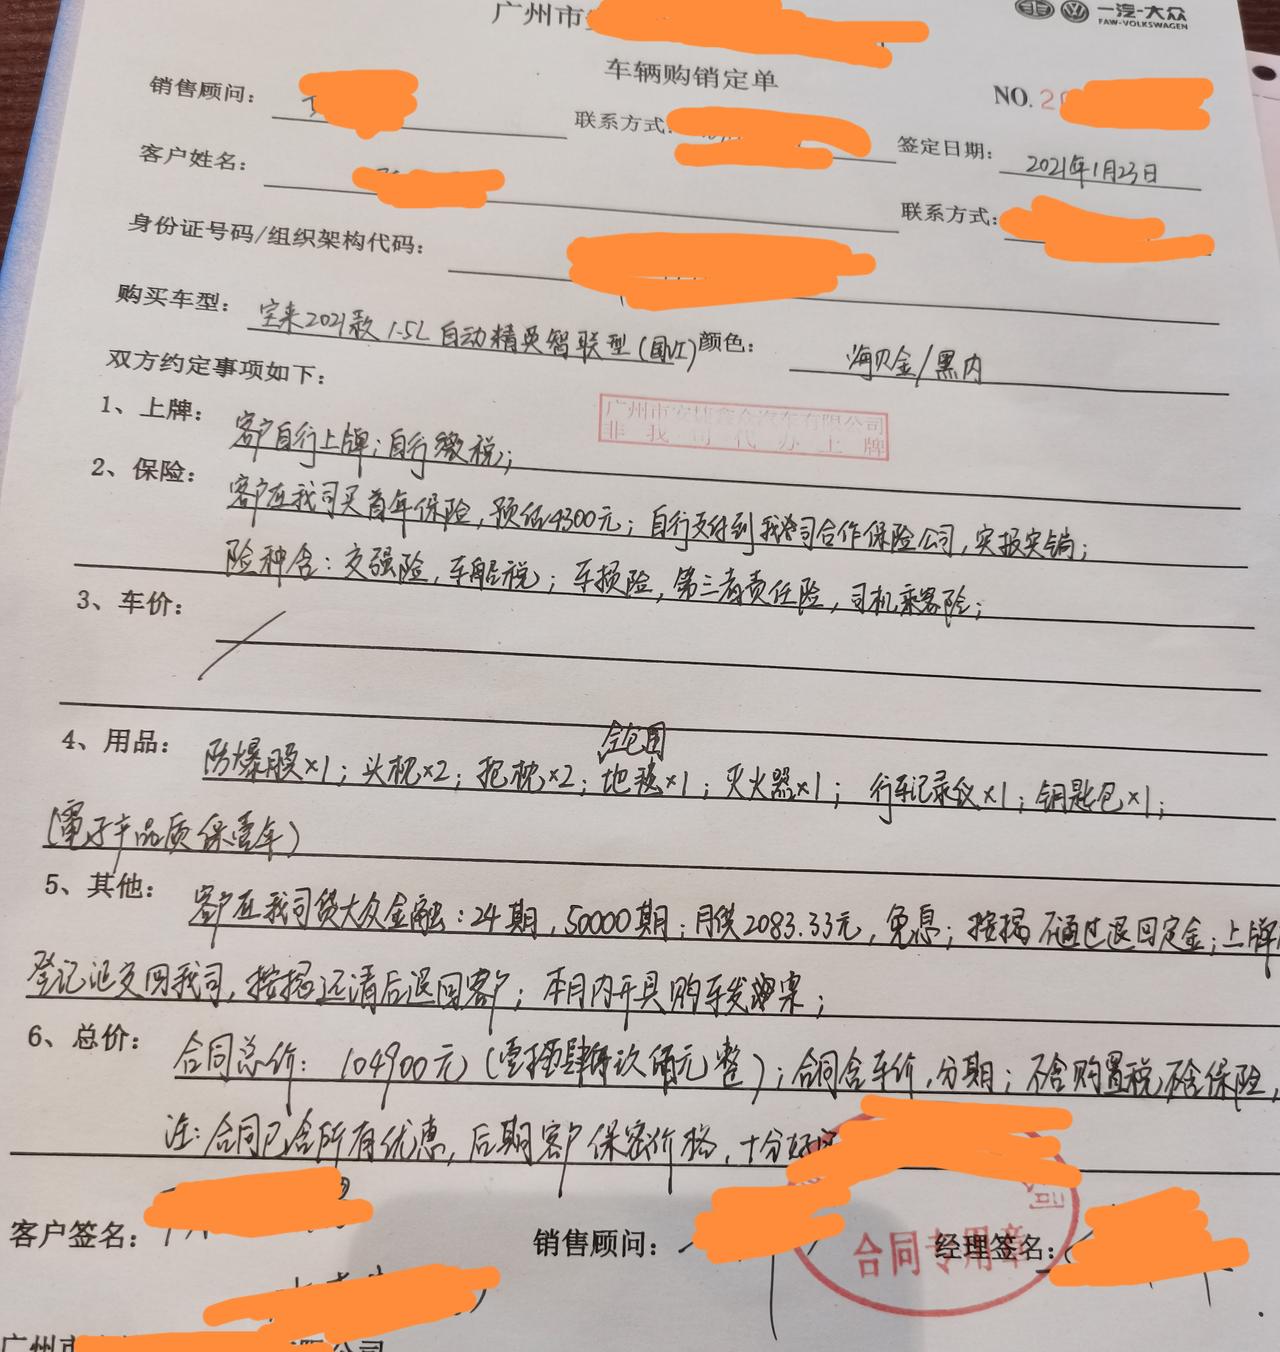 广州市
一汽-大众
FAW-VOLKSWAGEN
车辆购销定单
NO. 2
销售顾问：
联系方式：
签定日期： 2021年1月23日
客户姓名：
联系方式：
身份证号码/组织架构代码：
购买车型： 宝来2021款 1.5L 自动精英智联型(国VI) 颜色： 海贝金/黑内
双方约定事项如下：
1、上牌： 客户自行上牌；自行缴税；
广州市安捷鑫众汽车有限公司
非我司代办上牌
2、保险： 客户在我司买首年保险，预估4300元；自行支付到我公司合作保险公司，实报实销；
险种含：交强险，车船税；车损险，第三者责任险，司机乘客险；
3、车价：
全包围
4、用品： 防爆膜×1；头枕×2；抱枕×2；地毯×1；灭火器×1；行车记录仪×1；钥匙包×1；
(電子产品质保壹年)
5、其他： 客户在我司贷大众金融：24期，50000期；月供2083.33元，免息；按揭不通过退回定金；上牌后
登记证交回我司，按揭还清后退回客户；本月内开具购车发票；
6、总价： 合同总价：104900元(壹拾肆仟玖佰元整)；合同含车价，分期；不含购置税，不含保险，
注：合同已含所有优惠，后期客户保密价格，十分好评
客户签名：
销售顾问：
经理签名：
司
合同专用章
广州市
公司